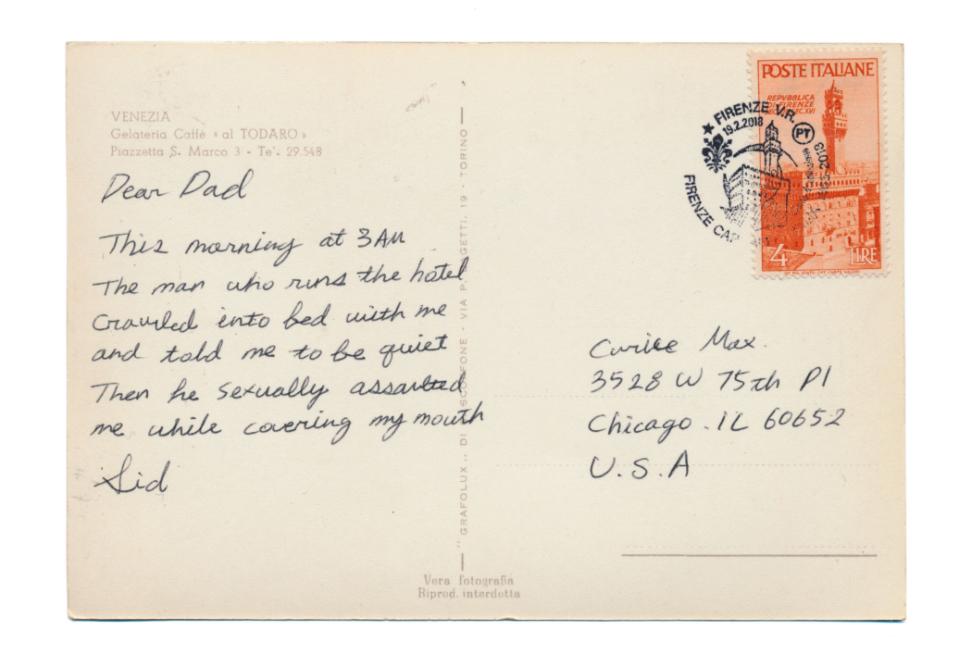 VENEZIA
Gelateria Caffè « al TODARO »
Piazzetta S. Marco 3 - Te'. 29.548
Dear Dad
This morning at 3AM
The man who runs the hotel
Crawled into bed with me
and told me to be quiet
Then he sexually assaulted
me while covering my mouth
Sid
" GRAFOLUX ,, DI SCORFONE - VIA P GETTI, 19 - TORINO
Vera fotografia
Riprod. interdetta
POSTE ITALIANE
REPVBBLICA
DI FIRENZE
4 LIRE
FIRENZE V.R.
19.2.2018
PT
FIRENZE CAP
Max.
3528 W 75th Pl
Chicago . IL 60652
U.S.A